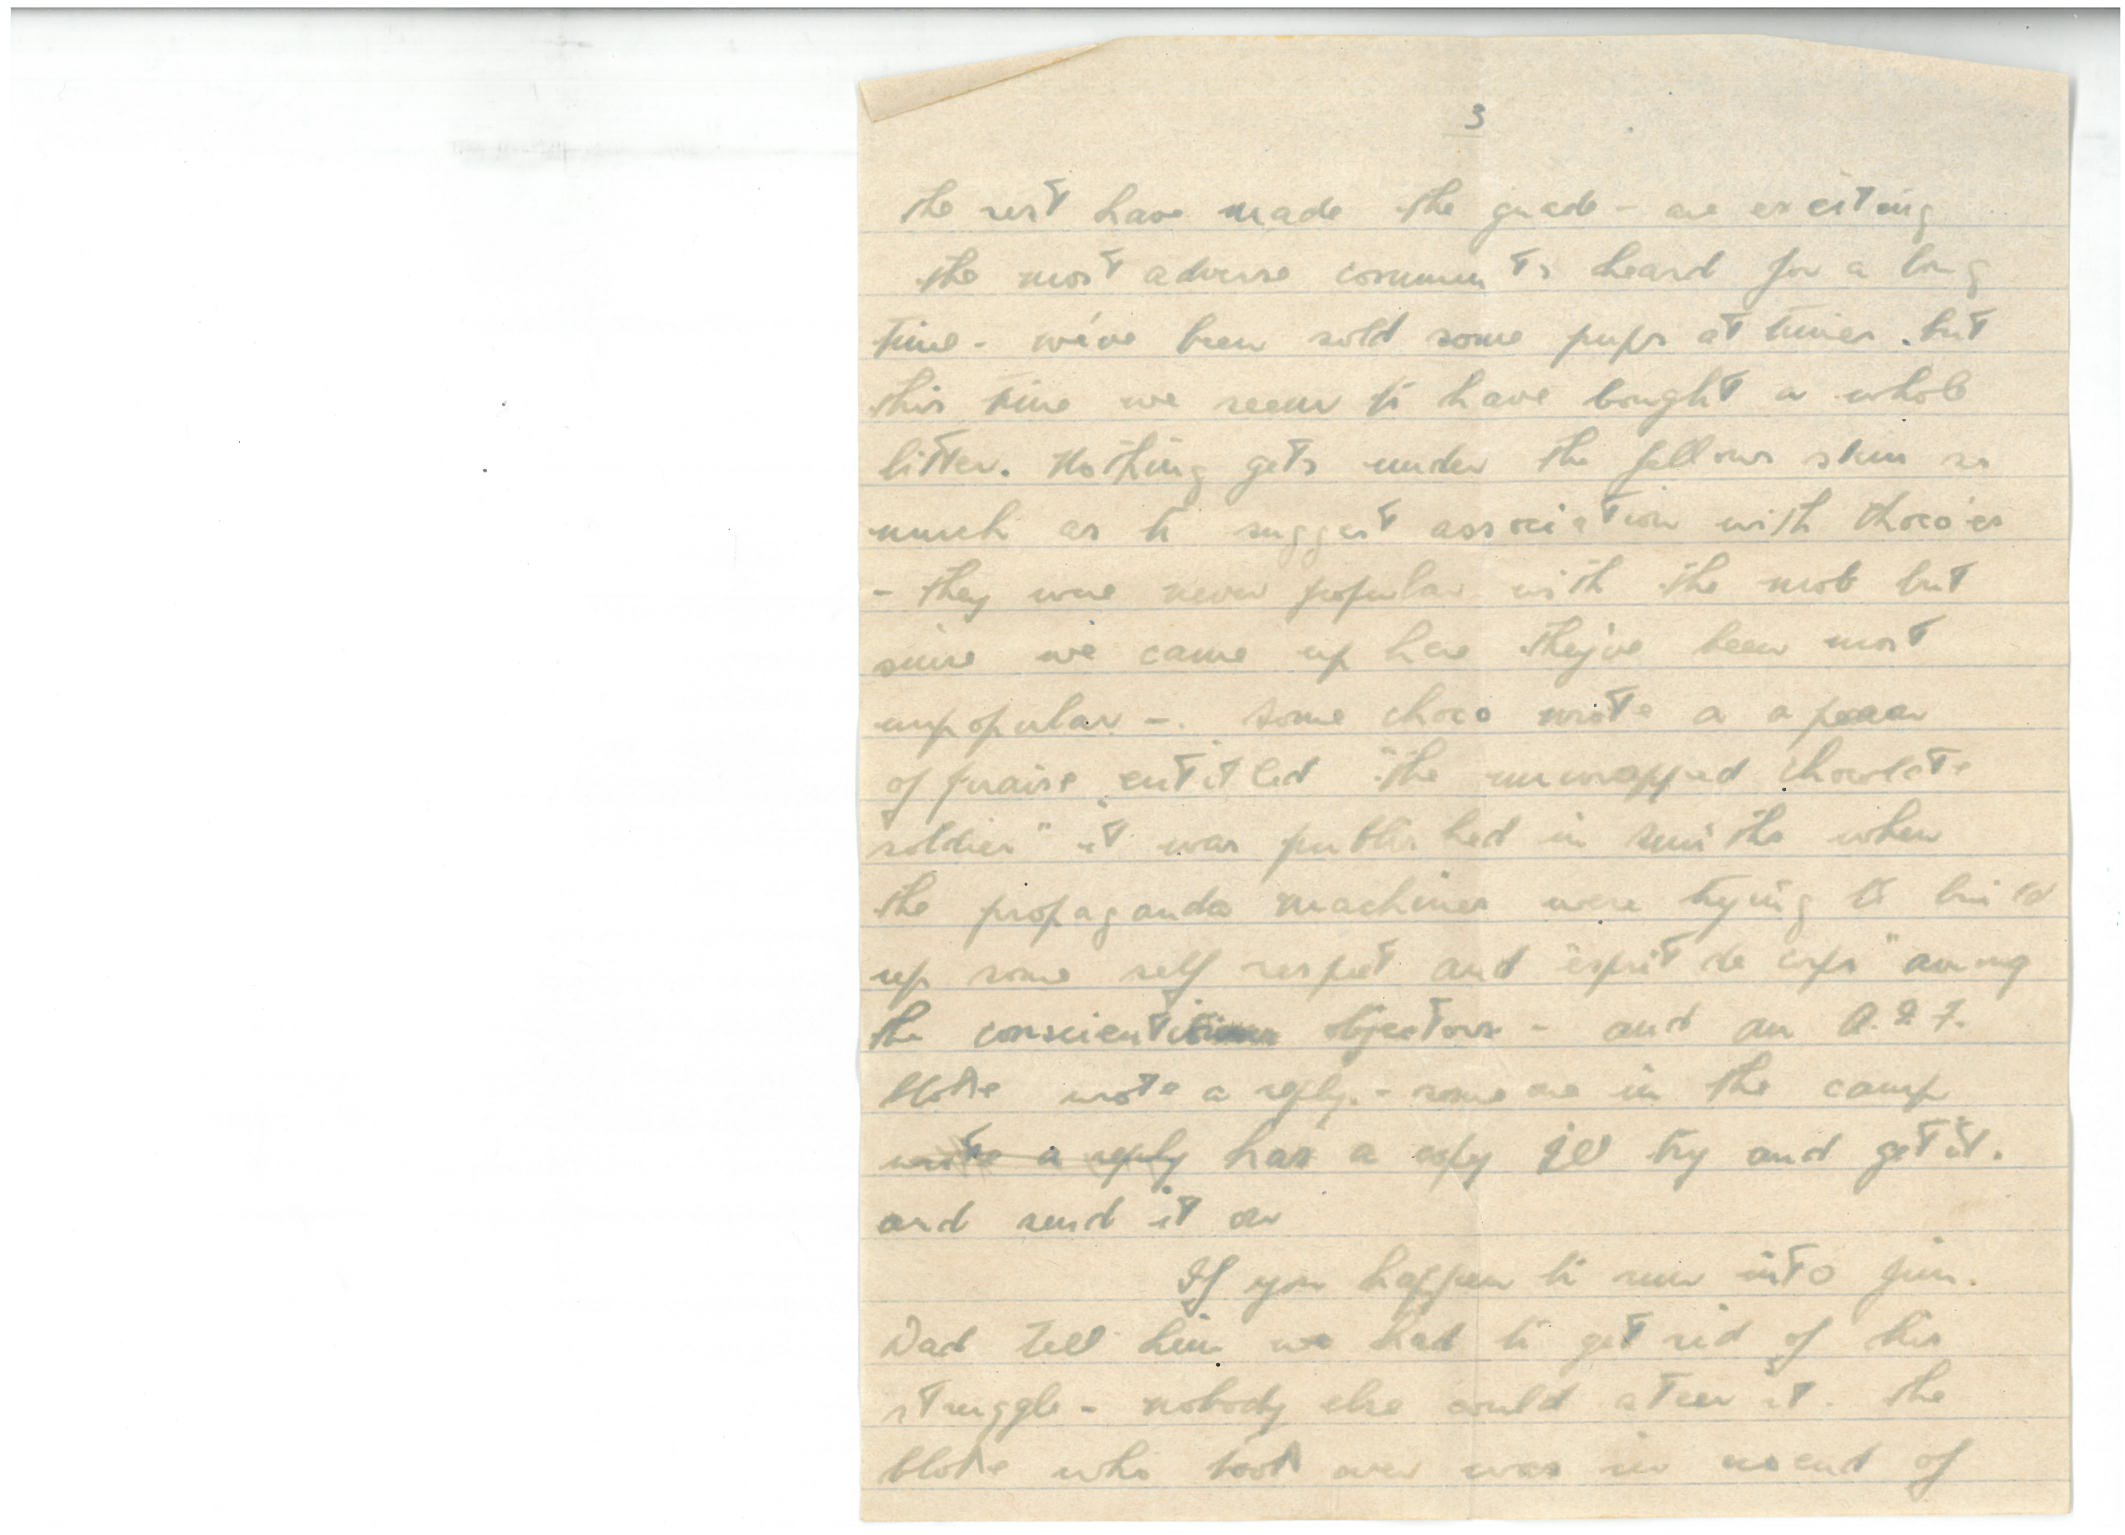 3
the rest have made the grade - are exciting
the most adverse comments heard for a long
time - we've been sold some pups at times . but
this time we seem to have bought a whole
litter. Nothing gets under the fellows skin so
much as to suggest association with choco'es
- they were never popular with the mob but
since we came up here they've been most
unpopular -. Some choco wrote a a paean
of praise entitled "the unwrapped chocolate
soldier" it was published in Smiths when
the propaganda machines were trying to build
up some self respect and "esprit de corps" among
the conscientious objectors - and an A.I.F.
bloke wrote a reply. - someone in the camp
wrote a reply has a copy I'll try and get it.
and send it on
If you happen to run into Jim.
Dad tell him we had to get rid of his
struggle - nobody else could steer it. The
bloke who took over was in no end of